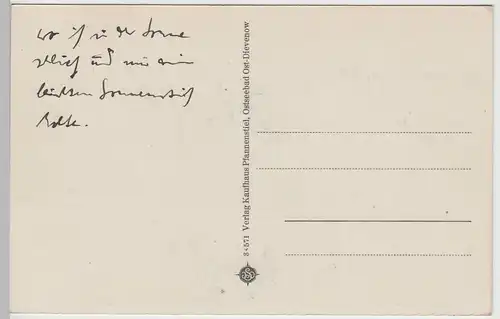 wo ich in der Sonne
schlief und mir einen
leichten Sonnenstich
holte.
34571 Verlag Kaufhaus Pfannenstiel, Ostseebad Ost-Dievenow